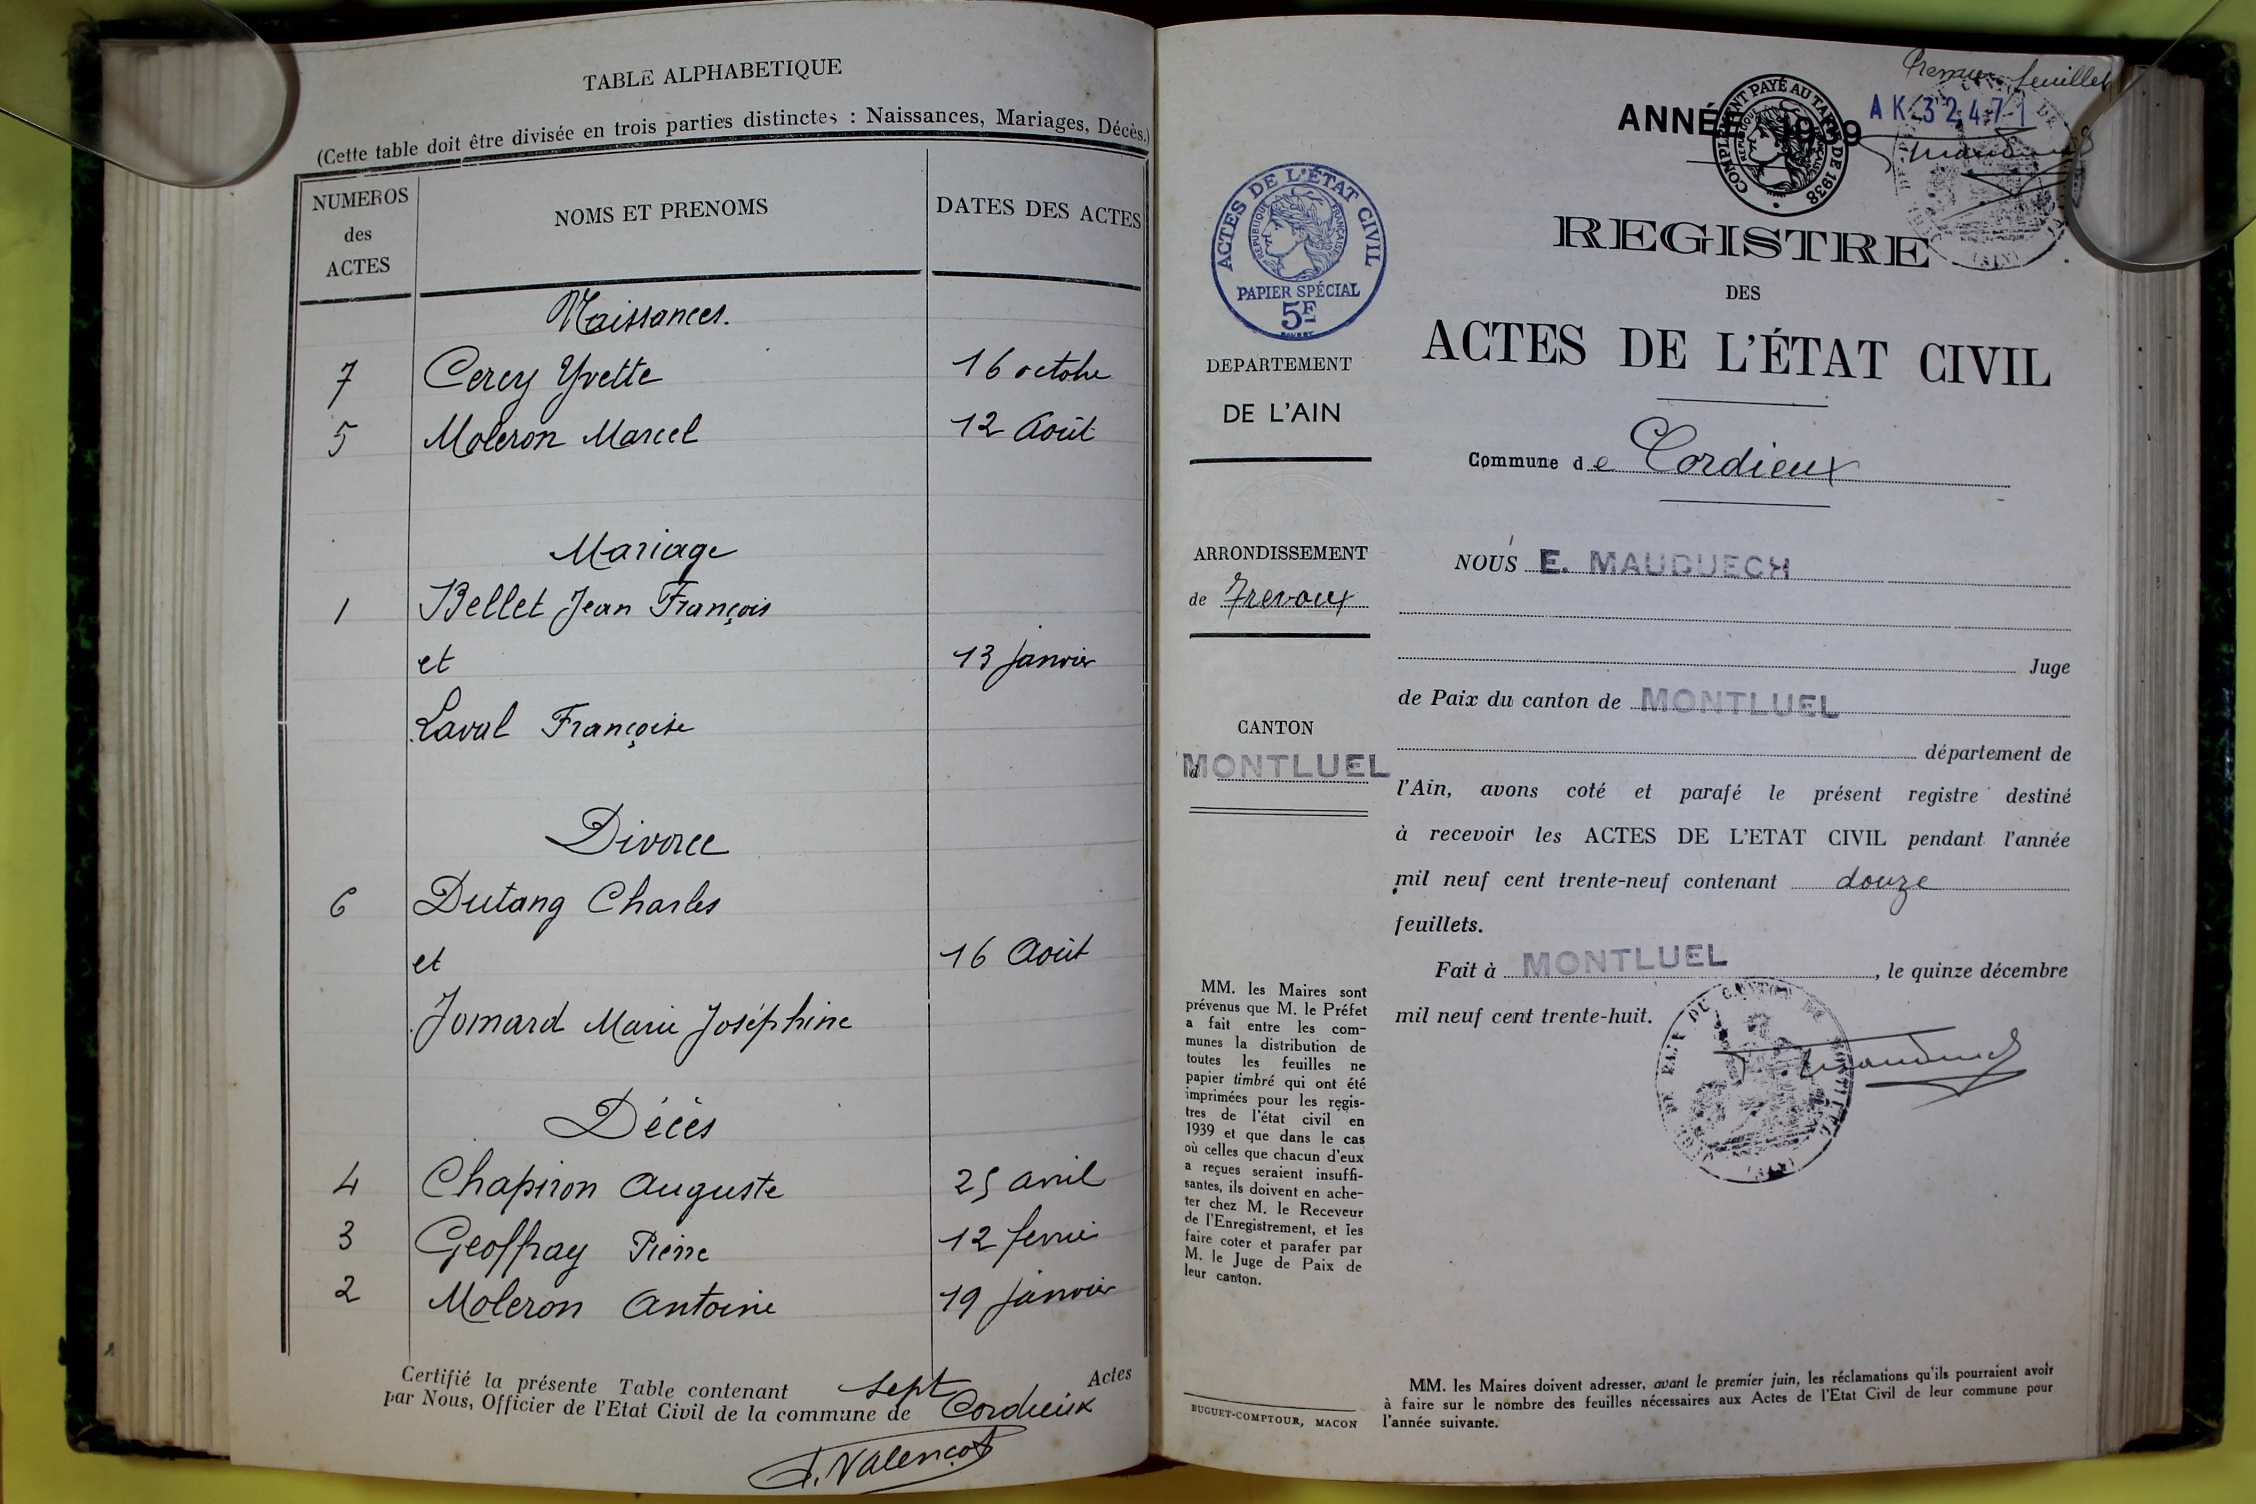 TABLE ALPHABETIQUE
(Cette table doit être divisée en trois parties distinctes : Naissances, Mariages, Décès.)
NUMEROS des ACTES
NOMS ET PRENOMS
DATES DES ACTES
Naissances.
7 Cercy Yvette 16 octobre
5 Moleron Marcel 12 Août
Mariage
1 Bellet Jean François
et 13 janvier
Laval Françoise
Divorce
6 Dutang Charles
et 16 Août
Jomard Marie Joséphine
Décès
4 Chapiron Auguste 25 avril
3 Geoffray Pierre 12 fevrier
2 Moleron Antoine 19 janvier
Certifié la présente Table contenant sept Actes
par Nous, Officier de l'Etat Civil de la commune de Cordieux
Valençot
Premier feuillet
ANNÉE 1939
AK 32471
COMPLEMENT PAYÉ AU TARIF DE 1938
REPUBLIQUE FRANÇAISE
ACTES DE L'ÉTAT CIVIL
REPUBLIQUE FRANÇAISE
PAPIER SPÉCIAL
5F
DEPARTEMENT
DE L'AIN
ARRONDISSEMENT
de Trevoux
CANTON
d MONTLUEL
MM. les Maires sont
prévenus que M. le Préfet
a fait entre les com-
munes la distribution de
toutes les feuilles ne
papier timbré qui ont été
imprimées pour les regis-
tres de l'état civil en
1939 et que dans le cas
où celles que chacun d'eux
a reçues seraient insuffi-
santes, ils doivent en ache-
ter chez M. le Receveur
de l'Enregistrement, et les
faire coter et parafer par
M. le Juge de Paix de
leur canton.
BUGUET-COMPTOUR, MACON
REGISTRE
DES
ACTES DE L'ÉTAT CIVIL
Commune de Cordieux
NOUS E. MAUDUECH
Juge
de Paix du canton de MONTLUEL
département de
l'Ain, avons coté et parafé le présent registre destiné
à recevoir les ACTES DE L'ETAT CIVIL pendant l'année
mil neuf cent trente-neuf contenant douze
feuillets.
Fait à MONTLUEL, le quinze décembre
mil neuf cent trente-huit.
MM. les Maires doivent adresser, avant le premier juin, les réclamations qu'ils pourraient avoir
à faire sur le nombre des feuilles nécessaires aux Actes de l'Etat Civil de leur commune pour
l'année suivante.